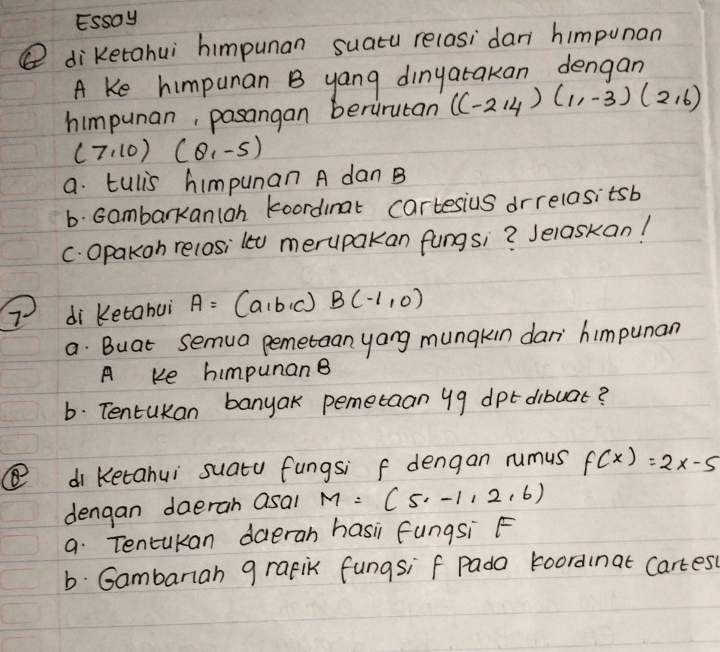 Essay
6 di ketahui himpunan suatu relasi dari himpunan
A ke himpunan B yang dinyatakan dengan
himpunan, pasangan berurutan ((-2,4) (1,-3) (2,6)
(7,10) (8,-5)
a. tulis himpunan A dan B
b. Gambarkanlah koordinat cartesius dr relasi tsb
c. Apakah relasi itu merupakan fungsi? Jelaskan!
7 di ketahui A = (a,b,c) B(-1,0)
a. Buat semua pemetaan yang mungkin dari himpunan
A ke himpunan B
b. Tentukan banyak pemetaan yg dpt dibuat?
8 di ketahui suatu fungsi f dengan rumus f(x) = 2x-5
dengan daerah asal M = (5, -1, 2, 6)
a. Tentukan daerah hasil fungsi F
b. Gambarlah grafik fungsi f pada koordinat cartesi